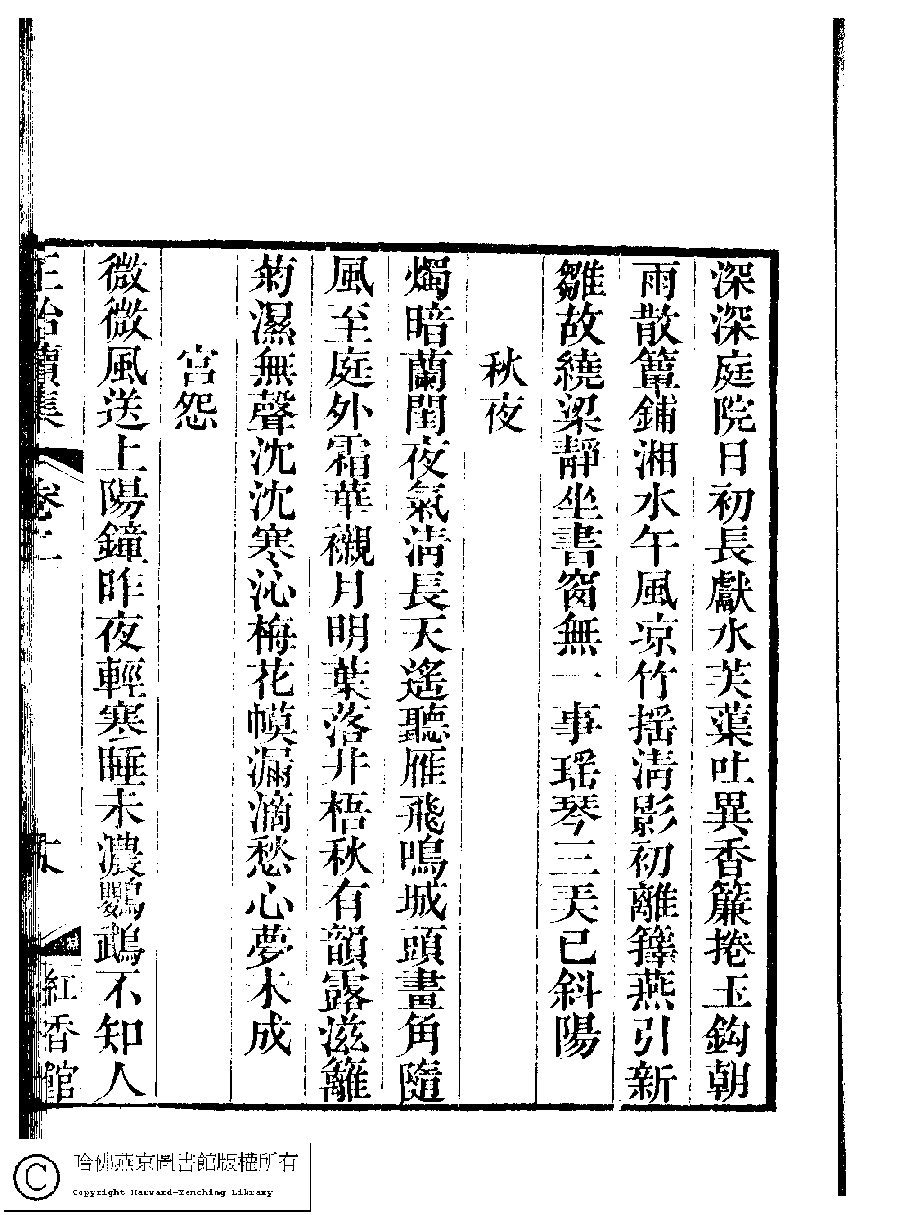 深深庭院日初長獻水芙蕖吐異香簾捲玉鈎朝
雨散簟鋪湘水午風凉竹摇清影初離籜燕引新
雛故繞梁靜坐書窗無一事瑶琴三弄已斜陽
秋夜
燭暗蘭閨夜氣清長天遙聽雁飛鳴城頭畫角隨
風至庭外霜華襯月明葉落井梧秋有韻露滋籬
菊濕無聲沈沈寒沁梅花幙漏滴愁心夢未成
宫怨
微微風送上陽鐘昨夜輕寒睡未濃鸚鵡不知人
正始續集 卷二 紅香館
哈佛燕京圖書館版權所有
Copyright Harvard-Yenching Library